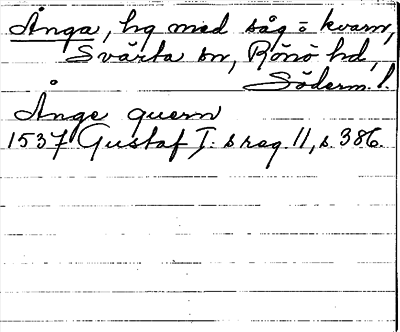 Ånga, hg med såg o kvarn,
Svärta sn, Rönö hd,
Söderm. l.
Ånge quern
1537 Gustaf I:s reg. 11, s. 386.